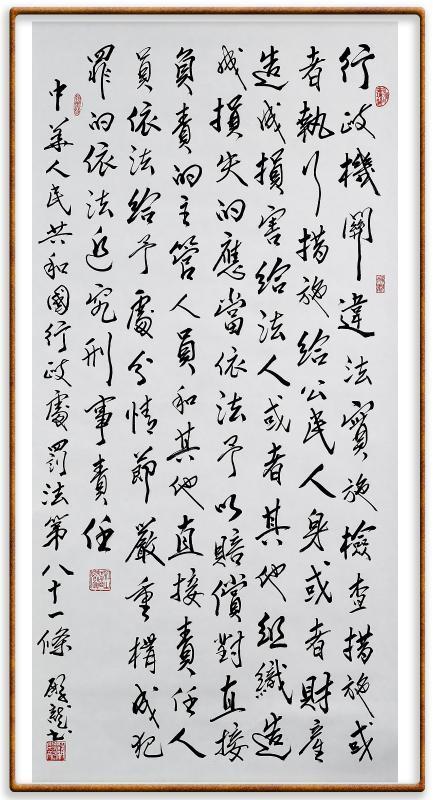 行政機關違法實施檢查措施或
者執行措施給公民人身或者財產
造成損害給法人或者其他組織造
成損失的應當依法予以賠償對直接
負責的主管人員和其他直接責任人
員依法給予處分情節嚴重構成犯
罪的依法追究刑事責任
中華人民共和國行政處罰法第八十一條
龍书